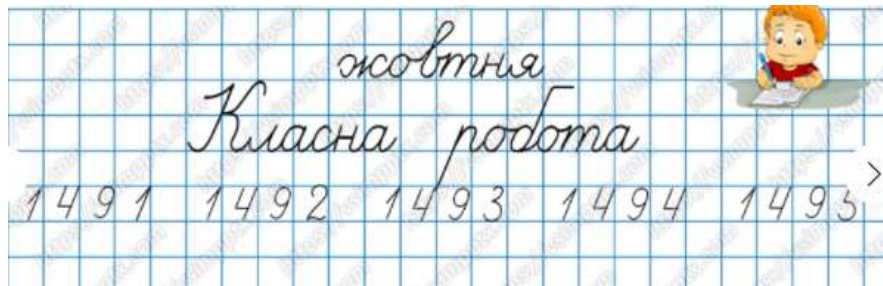 жовтня
Класна робота
1491 1492 1493 1494 1495